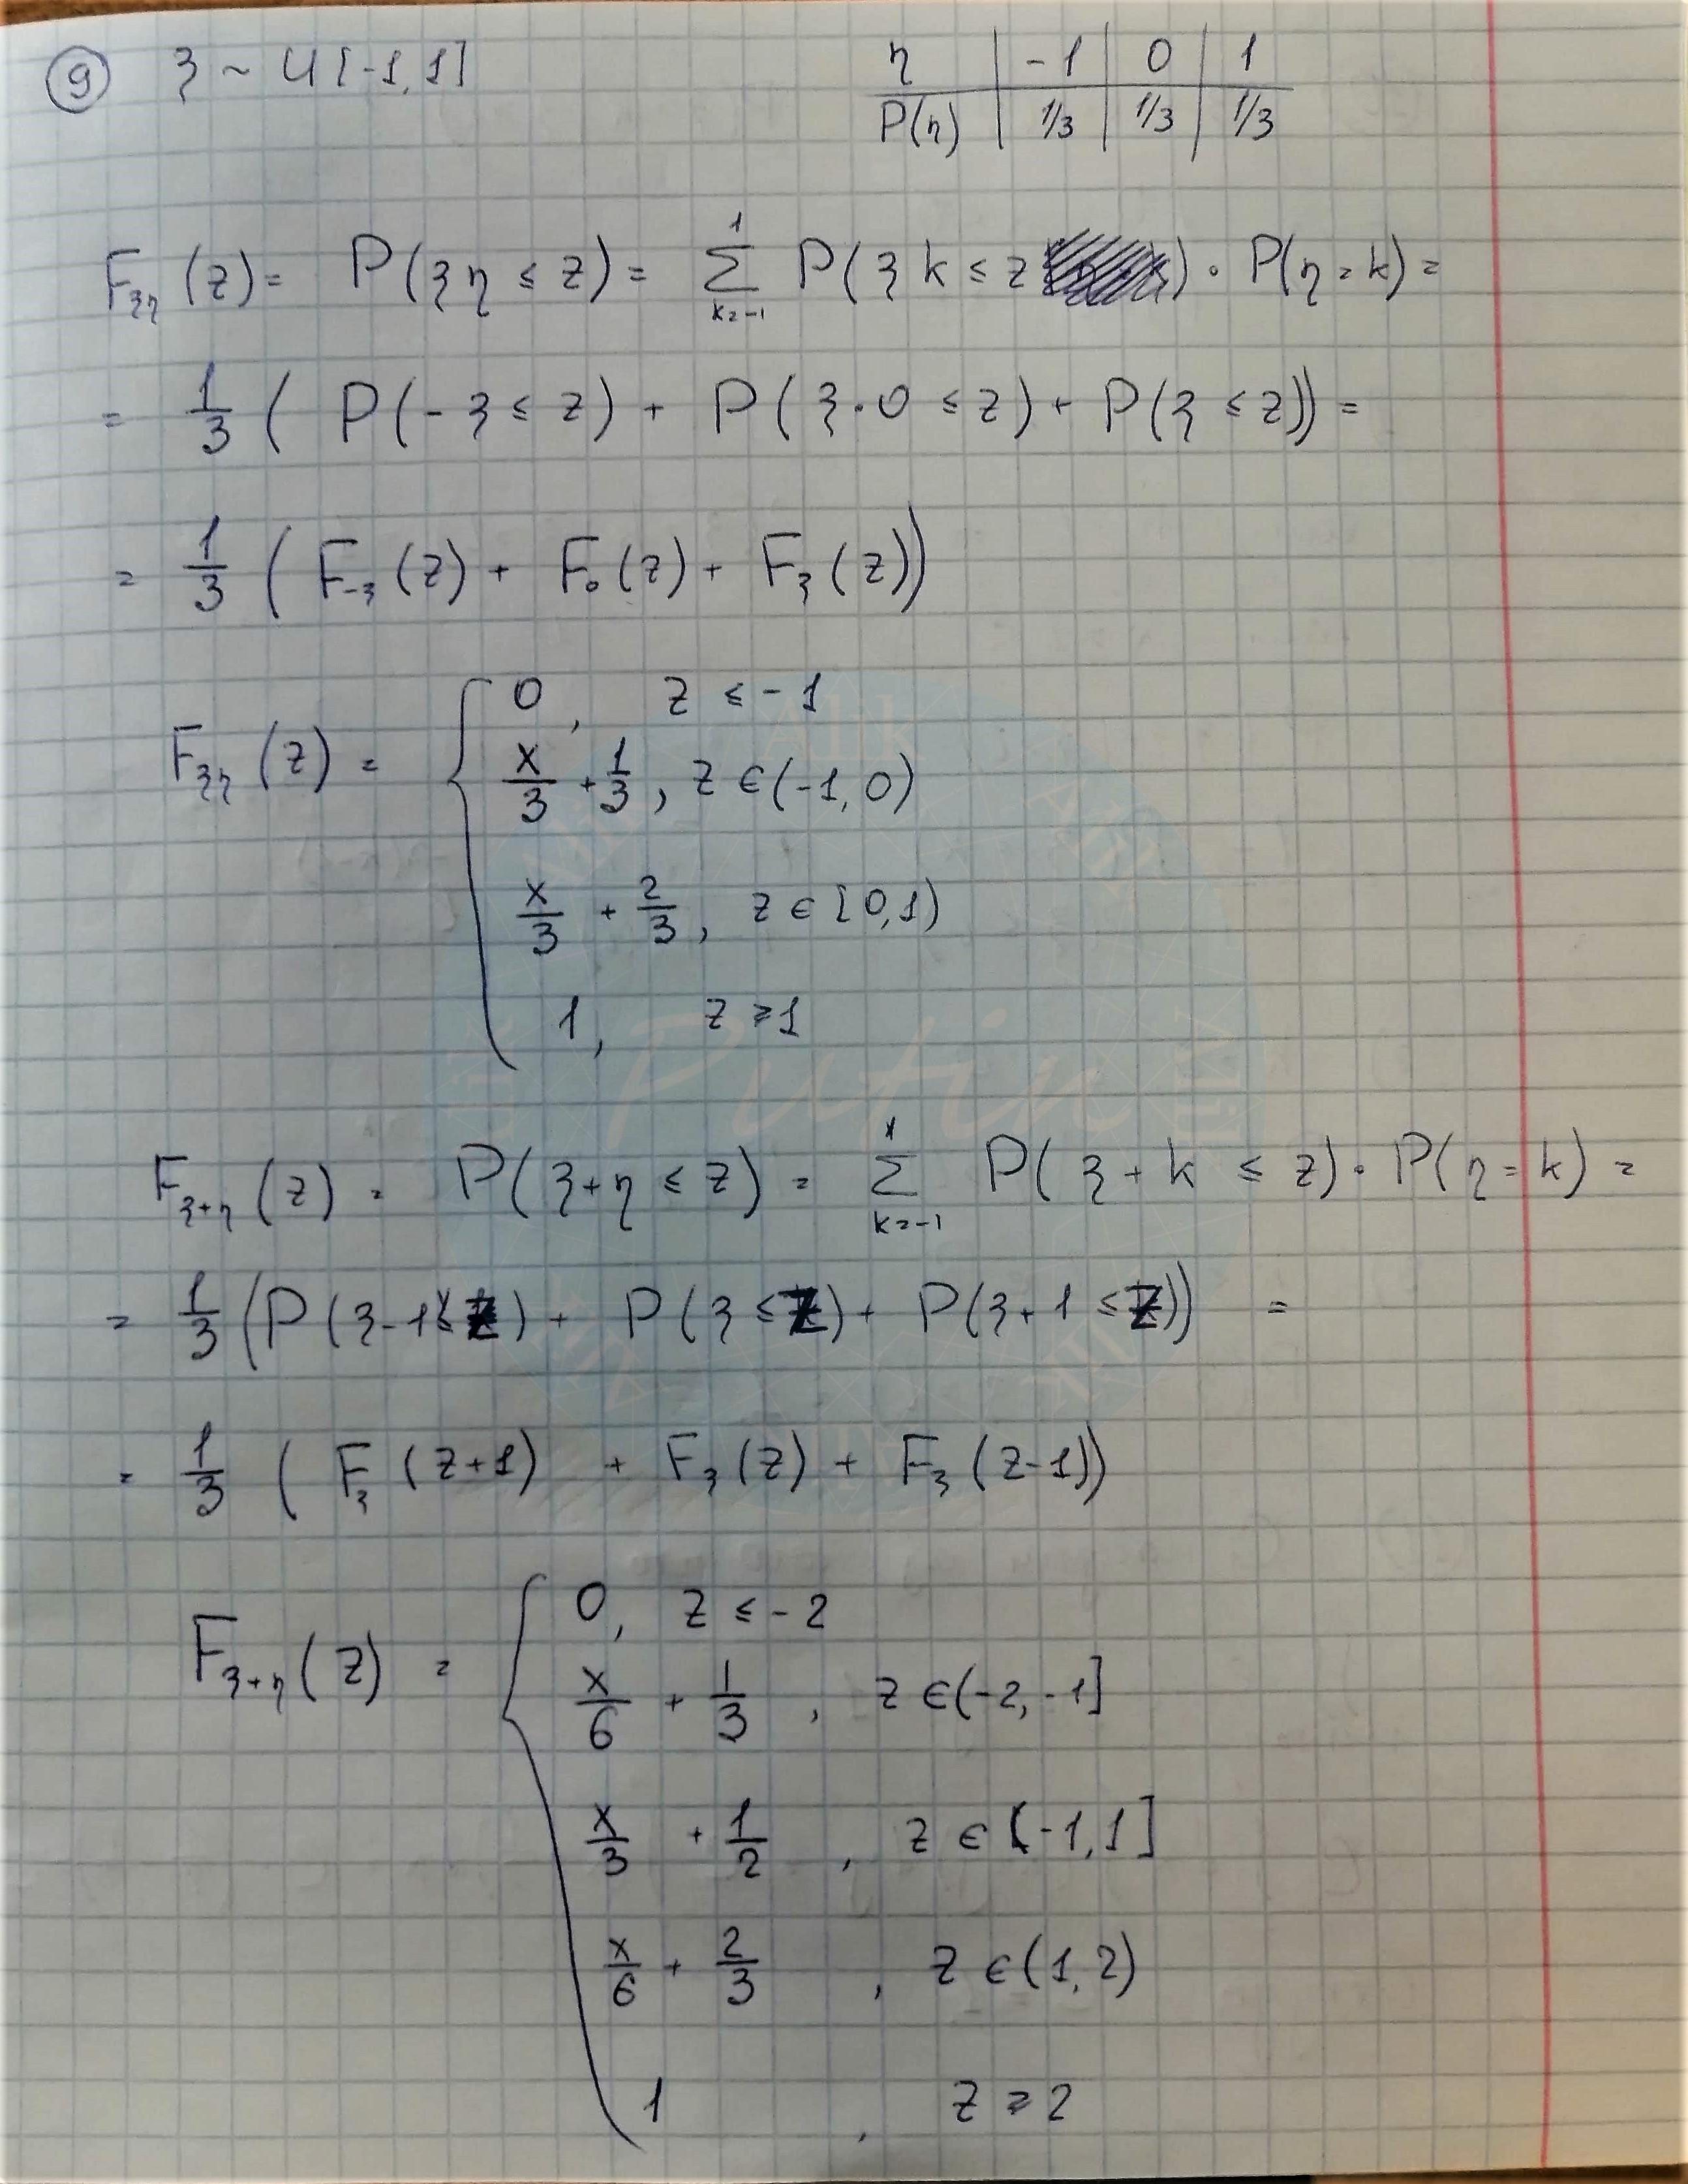 ⑨ ξ ~ U[-1,1]
η | -1 | 0 | 1
P(η) | 1/3 | 1/3 | 1/3
F_{ξη}(z) = P(ξη ≤ z) = ∑_{k=-1}^{1} P(ξk ≤ z) · P(η=k) =
= 1/3 ( P(-ξ ≤ z) + P(ξ·0 ≤ z) + P(ξ ≤ z)) =
= 1/3 ( F_{-ξ}(z) + F_0(z) + F_ξ(z))
F_{ξη}(z) = { 0, z ≤ -1
x/3 + 1/3, z ∈ (-1,0)
x/3 + 2/3, z ∈ [0,1)
1, z ≥ 1
Putin
F_{ξ+η}(z) = P(ξ+η ≤ z) = ∑_{k=-1}^{1} P(ξ+k ≤ z) · P(η=k) =
= 1/3 (P(ξ-1 ≤ z) + P(ξ ≤ z) + P(ξ+1 ≤ z)) =
= 1/3 ( F_ξ(z+1) + F_ξ(z) + F_ξ(z-1))
F_{ξ+η}(z) = { 0, z ≤ -2
x/6 + 1/3, z ∈ (-2,-1]
x/3 + 1/2, z ∈ (-1,1]
x/6 + 2/3, z ∈ (1,2)
1, z ≥ 2